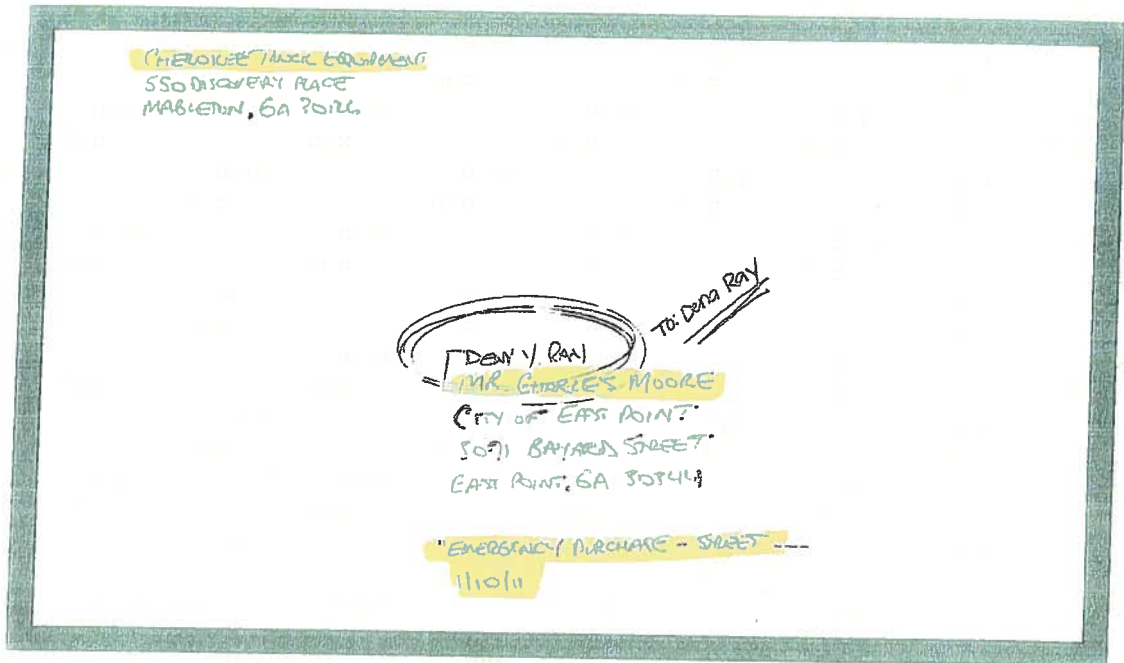 CHEROKEE TRUCK EQUIPMENT
550 DISCOVERY PLACE
MABLETON, GA 30126
To: Dena Ray
MR. CHARLES MOORE
CITY OF EAST POINT
3071 BAYARD STREET
EAST POINT, GA 30344
"EMERGENCY PURCHASE - STREET
1/10/11